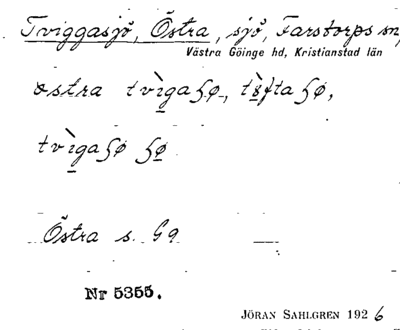 Tviggasjö, Östra, sjö, Farstorps sn,
Västra Göinge hd, Kristianstad län
østra tvìgaʃø, tɤ̀ftaʃø,
tvìgaʃø ʃø
Östra s. G9
Nr 5355.
JÖRAN SAHLGREN 1926